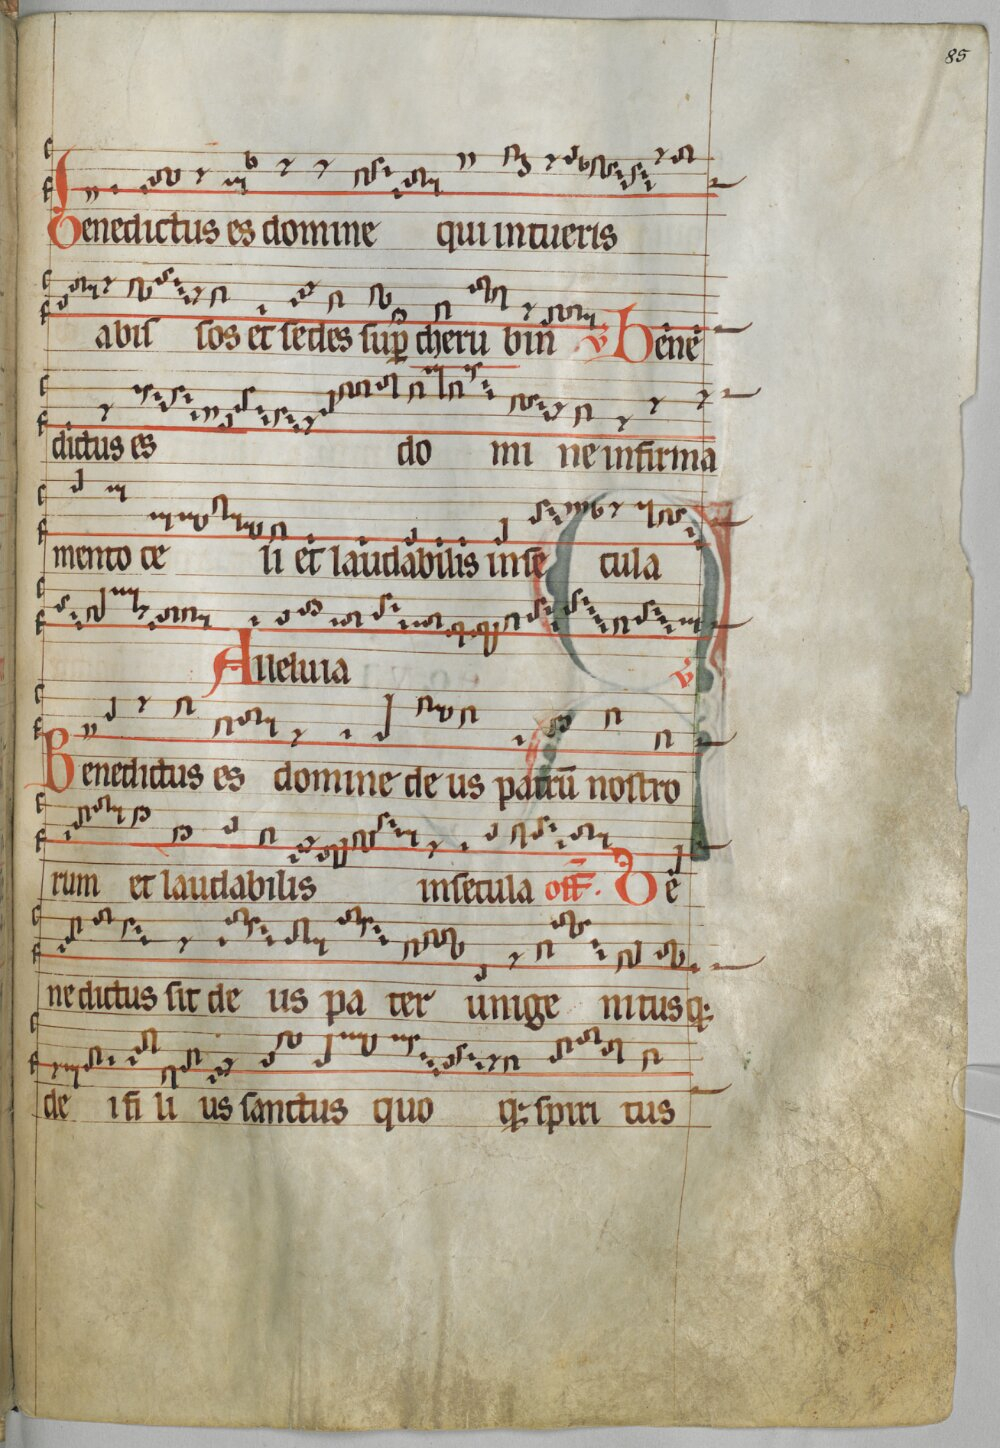 85
Benedictus es domine qui intueris
abis sos et sedes sup̲ cheru bin̄ v Bene
dictus es do mi ne infirma
mento ce li et laudabilis inse cula
Alleluia v
Benedictus es domine de us patrū nostro
rum et laudabilis insecula off̄. Be
nedictus sit de us pa ter unige nitusq;
de i fi li us sanctus quo q; spiri tus